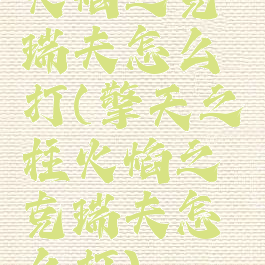 火焰之克
瑞夫怎么
打(擎天之
柱火焰之
克瑞夫怎
么打)